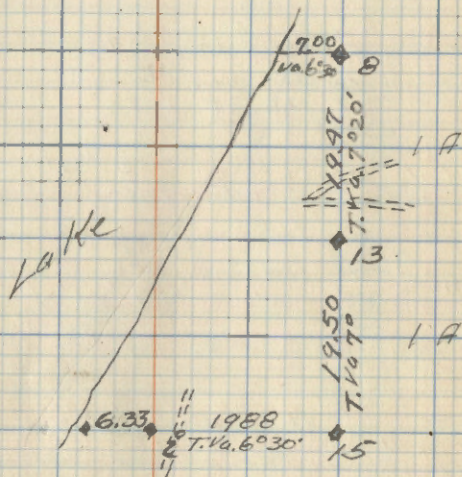 7.00
Va. 6°30'
8
19.47
T. Va. 7°20'
1 A
Lake
13
19.50
T. Va 7°
1 A
6.33
1988
T. Va. 6°30'
15